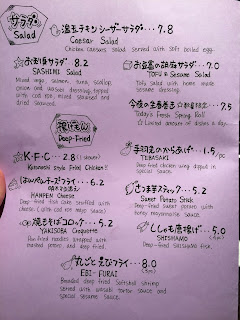 サラダ
Salad
温玉チキンシーザーサラダ・・・7.8
Caesar Salad
Chicken caesars salad served with soft boiled egg.
お刺身サラダ・・・8.2
SASHIMI Salad
Mixed ango, salmon, tuna, scallop
onion and wasabi dressing, topped
with cod roe, mixed seaweed and
dried seaweed.
サラダ・・・7.0
TOFU & Sesame Salad
Tofu salad with home made
sesame dressing.
7.5
Today's Fresh Spring Roll
☆ Limited amount of dishes a day.
揚げもの
Deep-Fried
☆K・F・C・・・2.8 (1 skewer)
Kushiyaki style Fried Chicken!!
はんぺんチーズフライ・・・6.2
HANPEN Cheese
Deep-fried fish cake stuffed with
cheese (with cod roe mayo sauce)
焼きそばコロッケ・・・5.2
YAKISOBA Croquette
Pan-fried noodles wrapped with
mashed potato, and deep-fried.
手羽先のからあげ・・・1.5/pc
TEBASAKI
Deep-fried chicken wing dipped in
special sauce.
さつま芋スティック・・・5.2
Sweet Potato Stick
Deep-fried sweet potato with
honey mayonnaise sauce.
ししゃも唐揚げ・・・5.0
(5pc)
SHISHAMO
Deep-fried shishamo fish.
丸ごとえびフライ・・・8.0
(5pc)
EBI-FURAI
Breaded deep fried softshell shrimp
served with wasabi tartar sauce and
special sesame sauce.